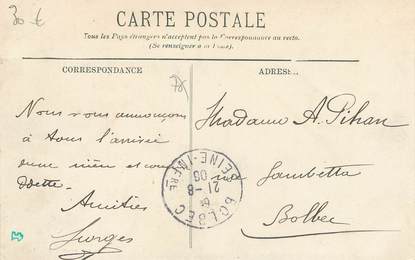 30 €
CARTE POSTALE
Tous les Pays étrangers n'acceptent pas la Correspondance au recto.
(Se renseigner à la Poste).
CORRESPONDANCE
ADRESSE
Nous vous annonçons
à tous l'arrivée
d'une nièce et cous
Odette
Amitiés
Georges
Madame A. Pihan
rue Gambetta
Bolbec
BOLBEC
21-8
08
SEINE-INFRE